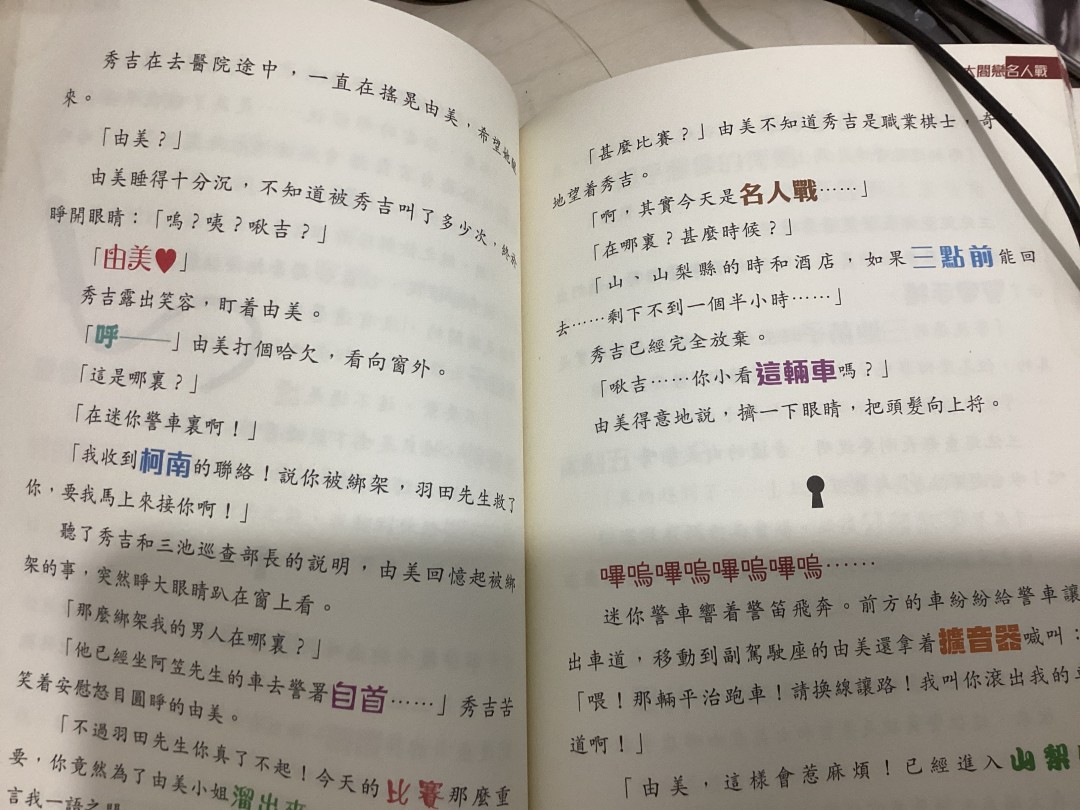 秀吉在去醫院途中，一直在搖晃由美，希望她醒
來。
「由美？」
由美睡得十分沉，不知道被秀吉叫了多少次，終於
睜開眼睛：「嗚？咦？啾吉？」
「由美♥」
秀吉露出笑容，盯着由美。
「呼——」由美打個哈欠，看向窗外。
「這是哪裏？」
「在迷你警車裏啊！」
「我收到柯南的聯絡！説你被綁架，羽田先生救了
你，要我馬上來接你啊！」
聽了秀吉和三池巡查部長的説明，由美回憶起被綁
架的事，突然睜大眼睛趴在窗上看。
「那麼綁架我的男人在哪裏？」
「他已經坐阿笠先生的車去警署自首……」秀吉苦
笑着安慰怒目圓睜的由美。
「不過羽田先生你真了不起！今天的比賽那麼重
要，你竟然為了由美小姐溜出來
言我一語之間
大鬧戀名人戰
「甚麼比賽？」由美不知道秀吉是職業棋士，奇
地望着秀吉。
「啊，其實今天是名人戰……」
「在哪裏？甚麼時候？」
「山、山梨縣的時和酒店，如果三點前能回
去……剩下不到一個半小時……」
秀吉已經完全放棄。
「啾吉……你小看這輛車嗎？」
由美得意地説，擠一下眼睛，把頭髮向上捋。
嗶嗚嗶嗚嗶嗚嗶嗚……
迷你警車響着警笛飛奔。前方的車紛紛給警車讓
出車道，移動到副駕駛座的由美還拿着擴音器喊叫：
「喂！那輛平治跑車！請換線讓路！我叫你滾出我的車
道啊！」
「由美，這樣會惹麻煩！已經進入山梨